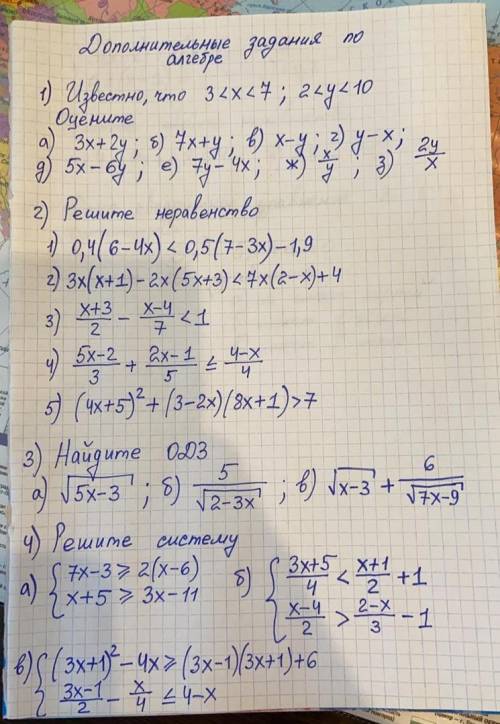 Дополнительные задания по
алгебре
1) Известно, что 3<x<7; 2<y<10
Оцените
а) 3x+2y; б) 7x+y; в) x-y; г) y-x;
д) 5x-6y; е) 7y-4x; ж) x/y; з) 2y/x
2) Решите неравенство
1) 0,4(6-4x)<0,5(7-3x)-1,9
2) 3x(x+1)-2x(5x+3)<7x(2-x)+4
3) (x+3)/2 - (x-4)/7 <1
4) (5x-2)/3 + (2x-1)/5 ≤ (4-x)/4
5) (4x+5)²+(3-2x)(8x+1)>7
3) Найдите ОДЗ
а) √(5x-3); б) 5/√(2-3x); в) √(x-3) + 6/√(7x-9)
4) Решите систему
а) { 7x-3≥2(x-6)
x+5≥3x-11
б) { (3x+5)/4 < (x+1)/2 +1
(x-4)/2 > (2-x)/3 -1
в) { (3x+1)²-4x≥(3x-1)(3x+1)+6
(3x-1)/2 - x/4 ≤ 4-x